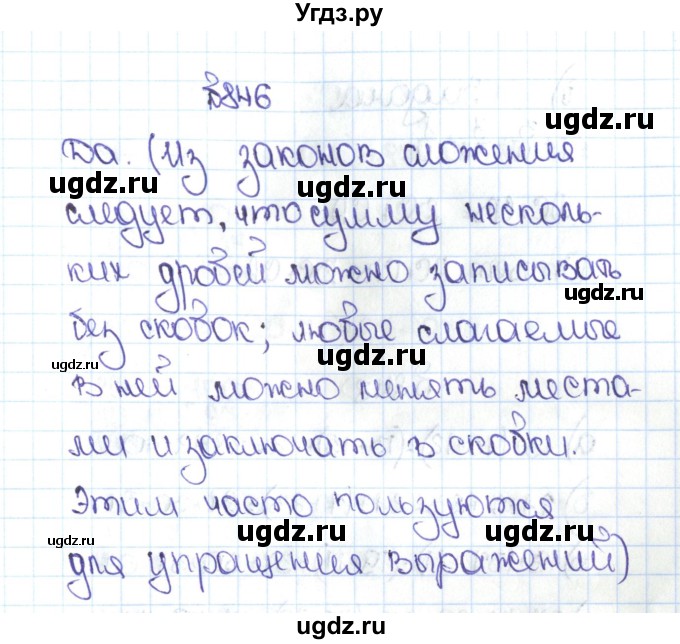 Угдз.ру
№846
Да. (Из законов сложения
ugdz.ru ugdz.ru
следует, что сумму несколь-
ких дробей можно записывать
ugdz.ru ugdz.ru
без скобок; любые слагаемые
ugdz.ru
в ней можно менять места-
ми и заключать в скобки.
ugdz.ru ugdz.ru
Этим часто пользуются
ugdz.ru ugdz.ru
для упращения выражений)
ugdz.ru